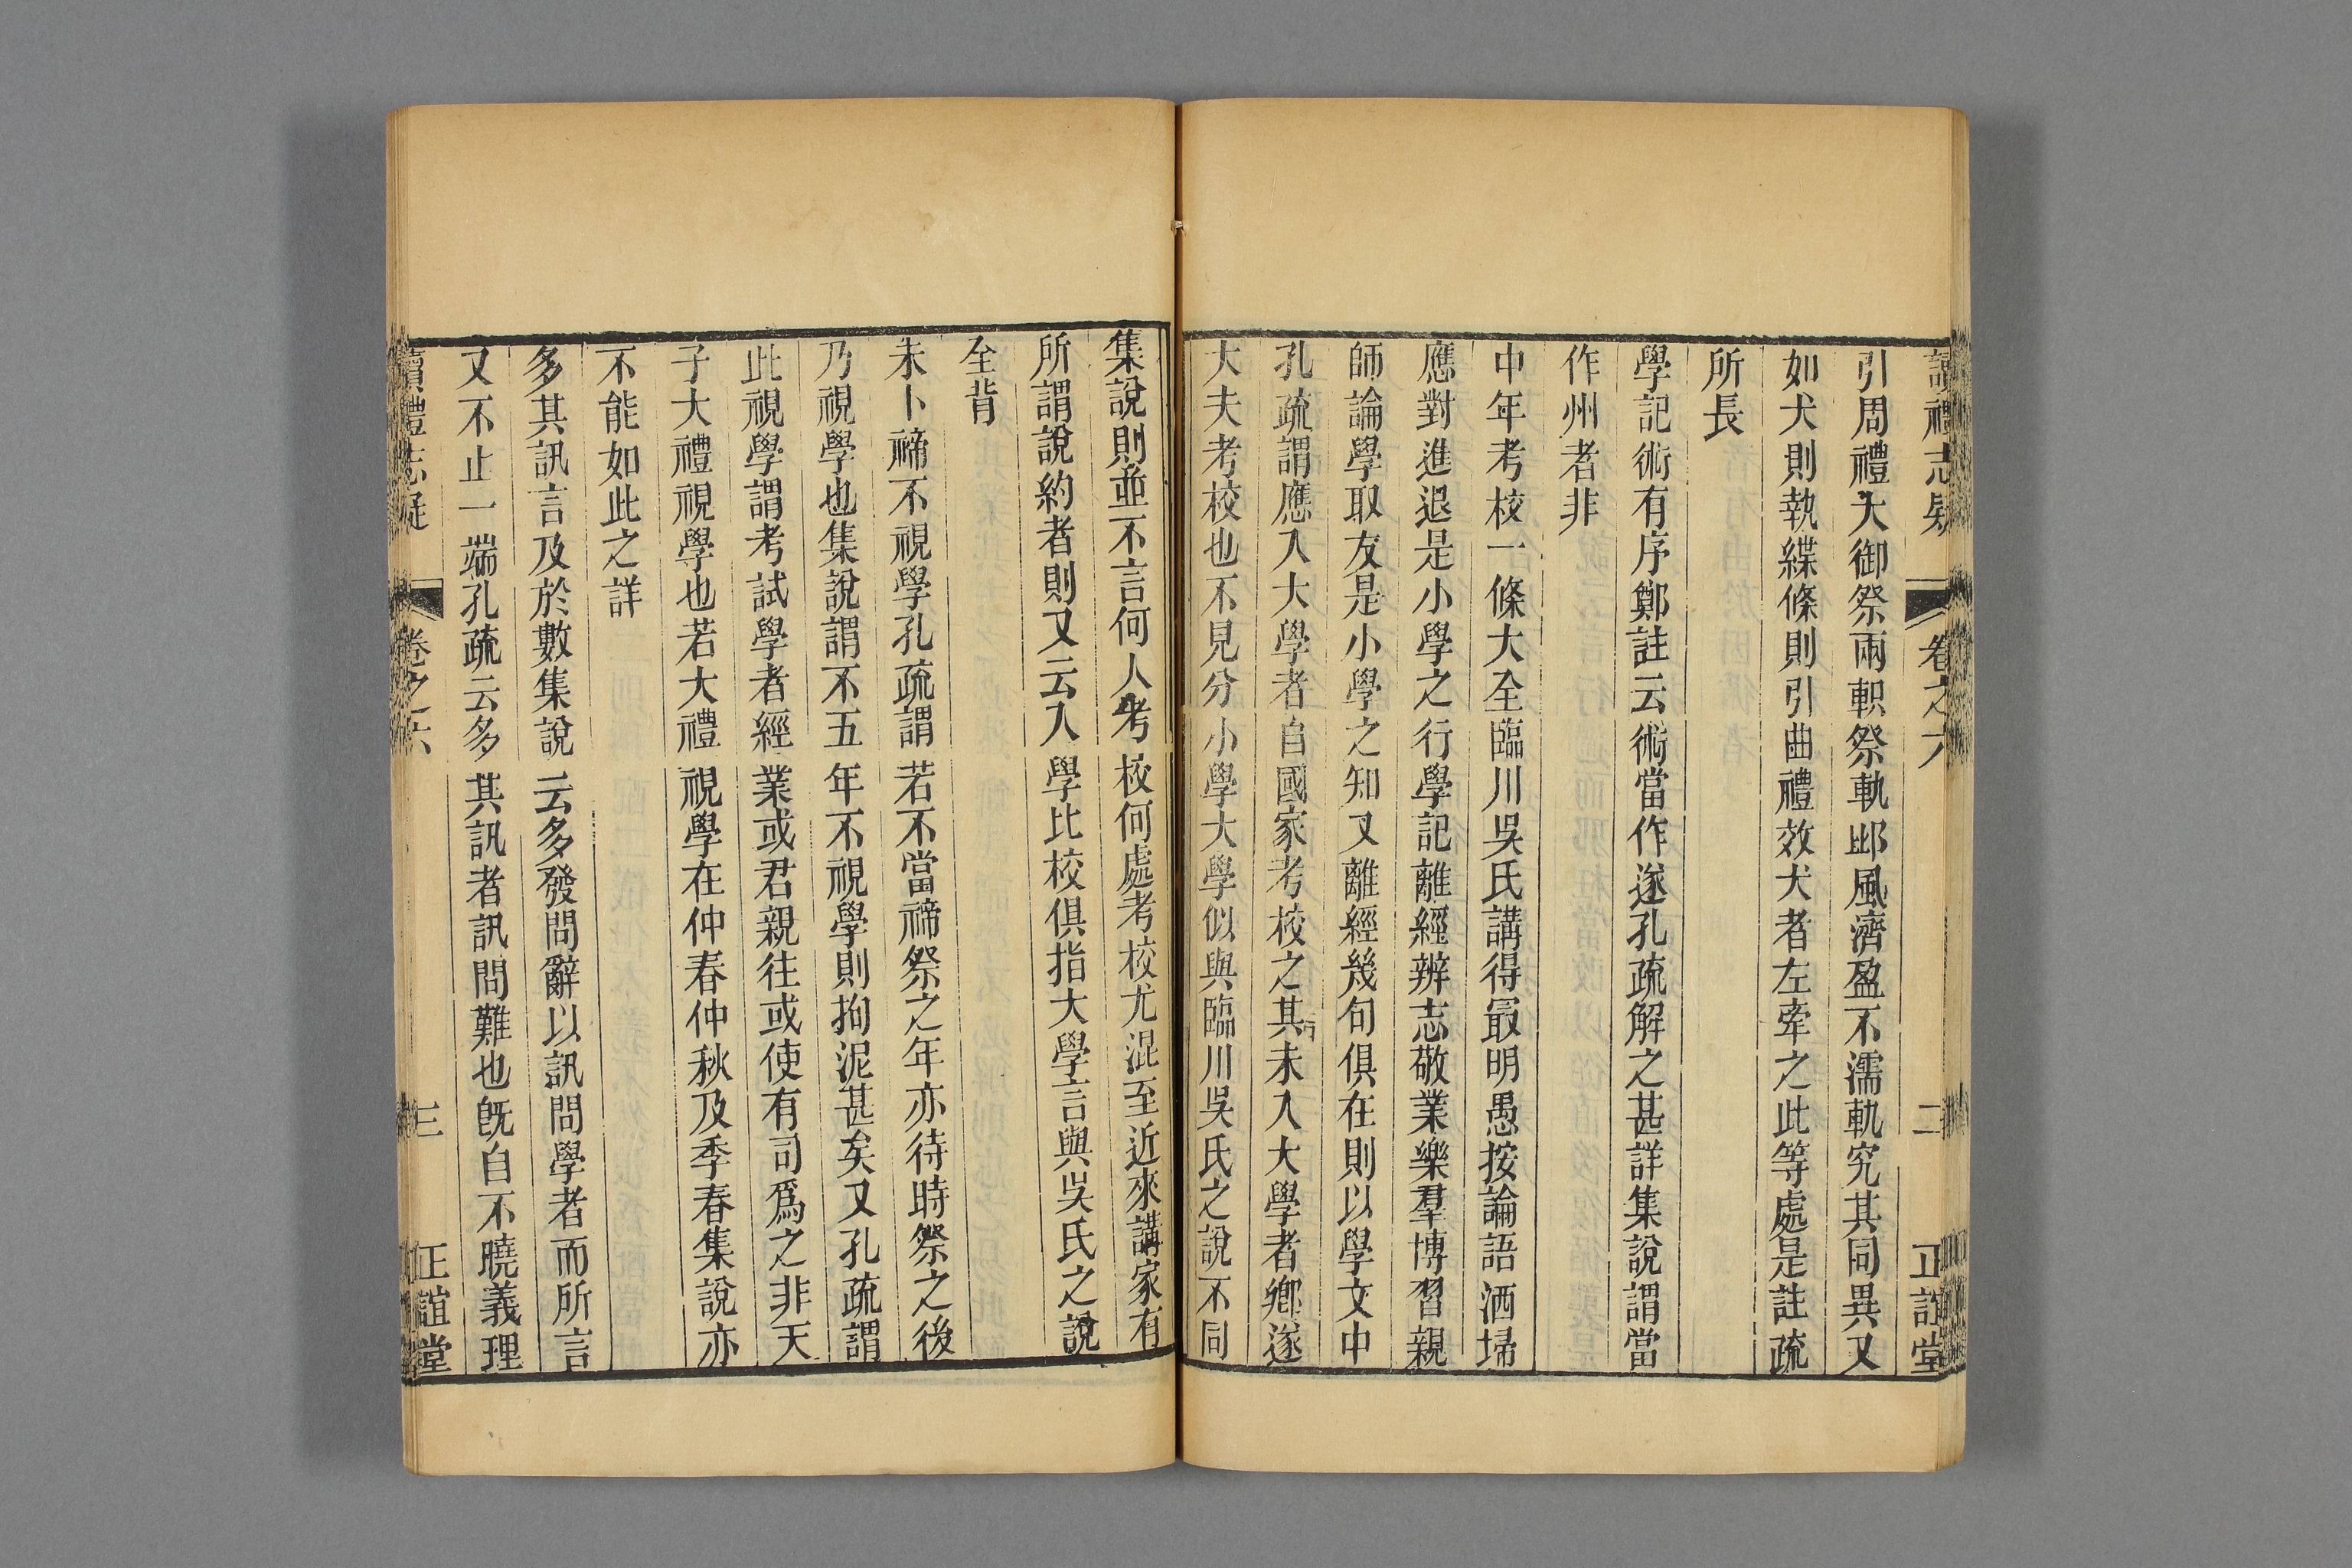 讀禮志疑 卷之六 二 正誼堂
引周禮大御祭兩軹祭軌邶風濟盈不濡軌究其同異又
如犬則執緤條則引曲禮效犬者左牽之此等處是註疏
所長
學記術有序鄭註云術當作遂孔疏解之甚詳集說謂當
作州者非
中年考校一條大全臨川吳氏講得最明愚按論語洒埽
應對進退是小學之行學記離經辨志敬業樂羣博習親
師論學取友是小學之知又離經幾句俱在則以學文中
孔疏謂應入大學者自國家考校之其未入大學者鄉遂
大夫考校也不見分小學大學似與臨川吳氏之說不同
集說則並不言何人考校何處考校尤混至近來講家有
所謂說約者則又云入學比校俱指大學言與吳氏之說
全背
未卜禘不視學孔疏謂若不當禘祭之年亦待時祭之後
乃視學也集說謂不五年不視學則拘泥甚矣又孔疏謂
此視學謂考試學者經業或君親往或使有司爲之非天
子大禮視學也若大禮視學在仲春仲秋及季春集說亦
不能如此之詳
多其訊言及於數集說云多發問辭以訊問學者而所言
又不止一端孔疏云多其訊者訊問難也既自不曉義理
讀禮志疑 卷之六 三 正誼堂